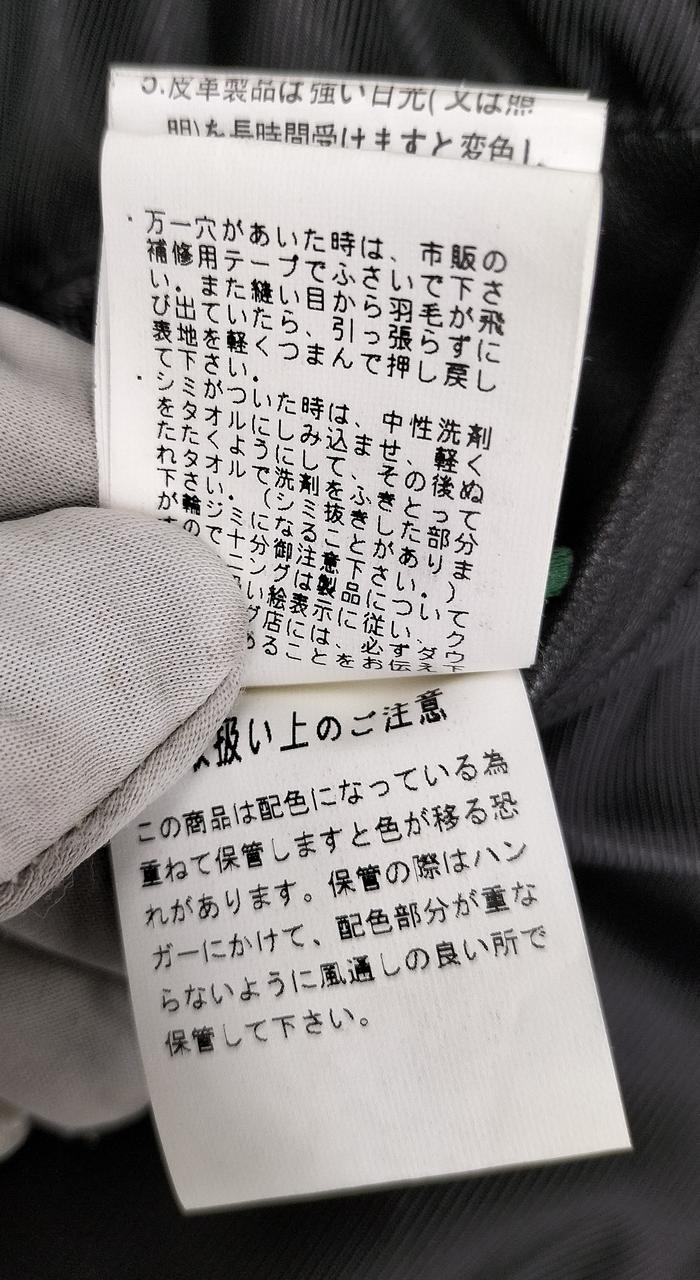 5.皮革製品は強い日光(又は照
明)を長時間受けますと変色し、
・万一穴があいた時は、市販の
補修用テープでふさいで下さ
い。また縫い目から羽毛が飛
び出ていたら、引っ張らずに
表地を軽くつまんで押し戻し
て下さい。
・シミがついた時は、中性洗剤
をタオルにしみ込ませ、軽く
たたくようにして、その後ぬ
れタオルで洗剤をふきとって
下さい。(シミ抜きした部分
が輪ジミになることがありま
すので十分に御注意下さい。)
ニングは製品について
い絵表示に従い、ク
グ店には、必ずダウ
ることをお伝え下
扱い上のご注意
この商品は配色になっている為
重ねて保管しますと色が移る恐
れがあります。保管の際はハン
ガーにかけて、配色部分が重な
らないように風通しの良い所で
保管して下さい。